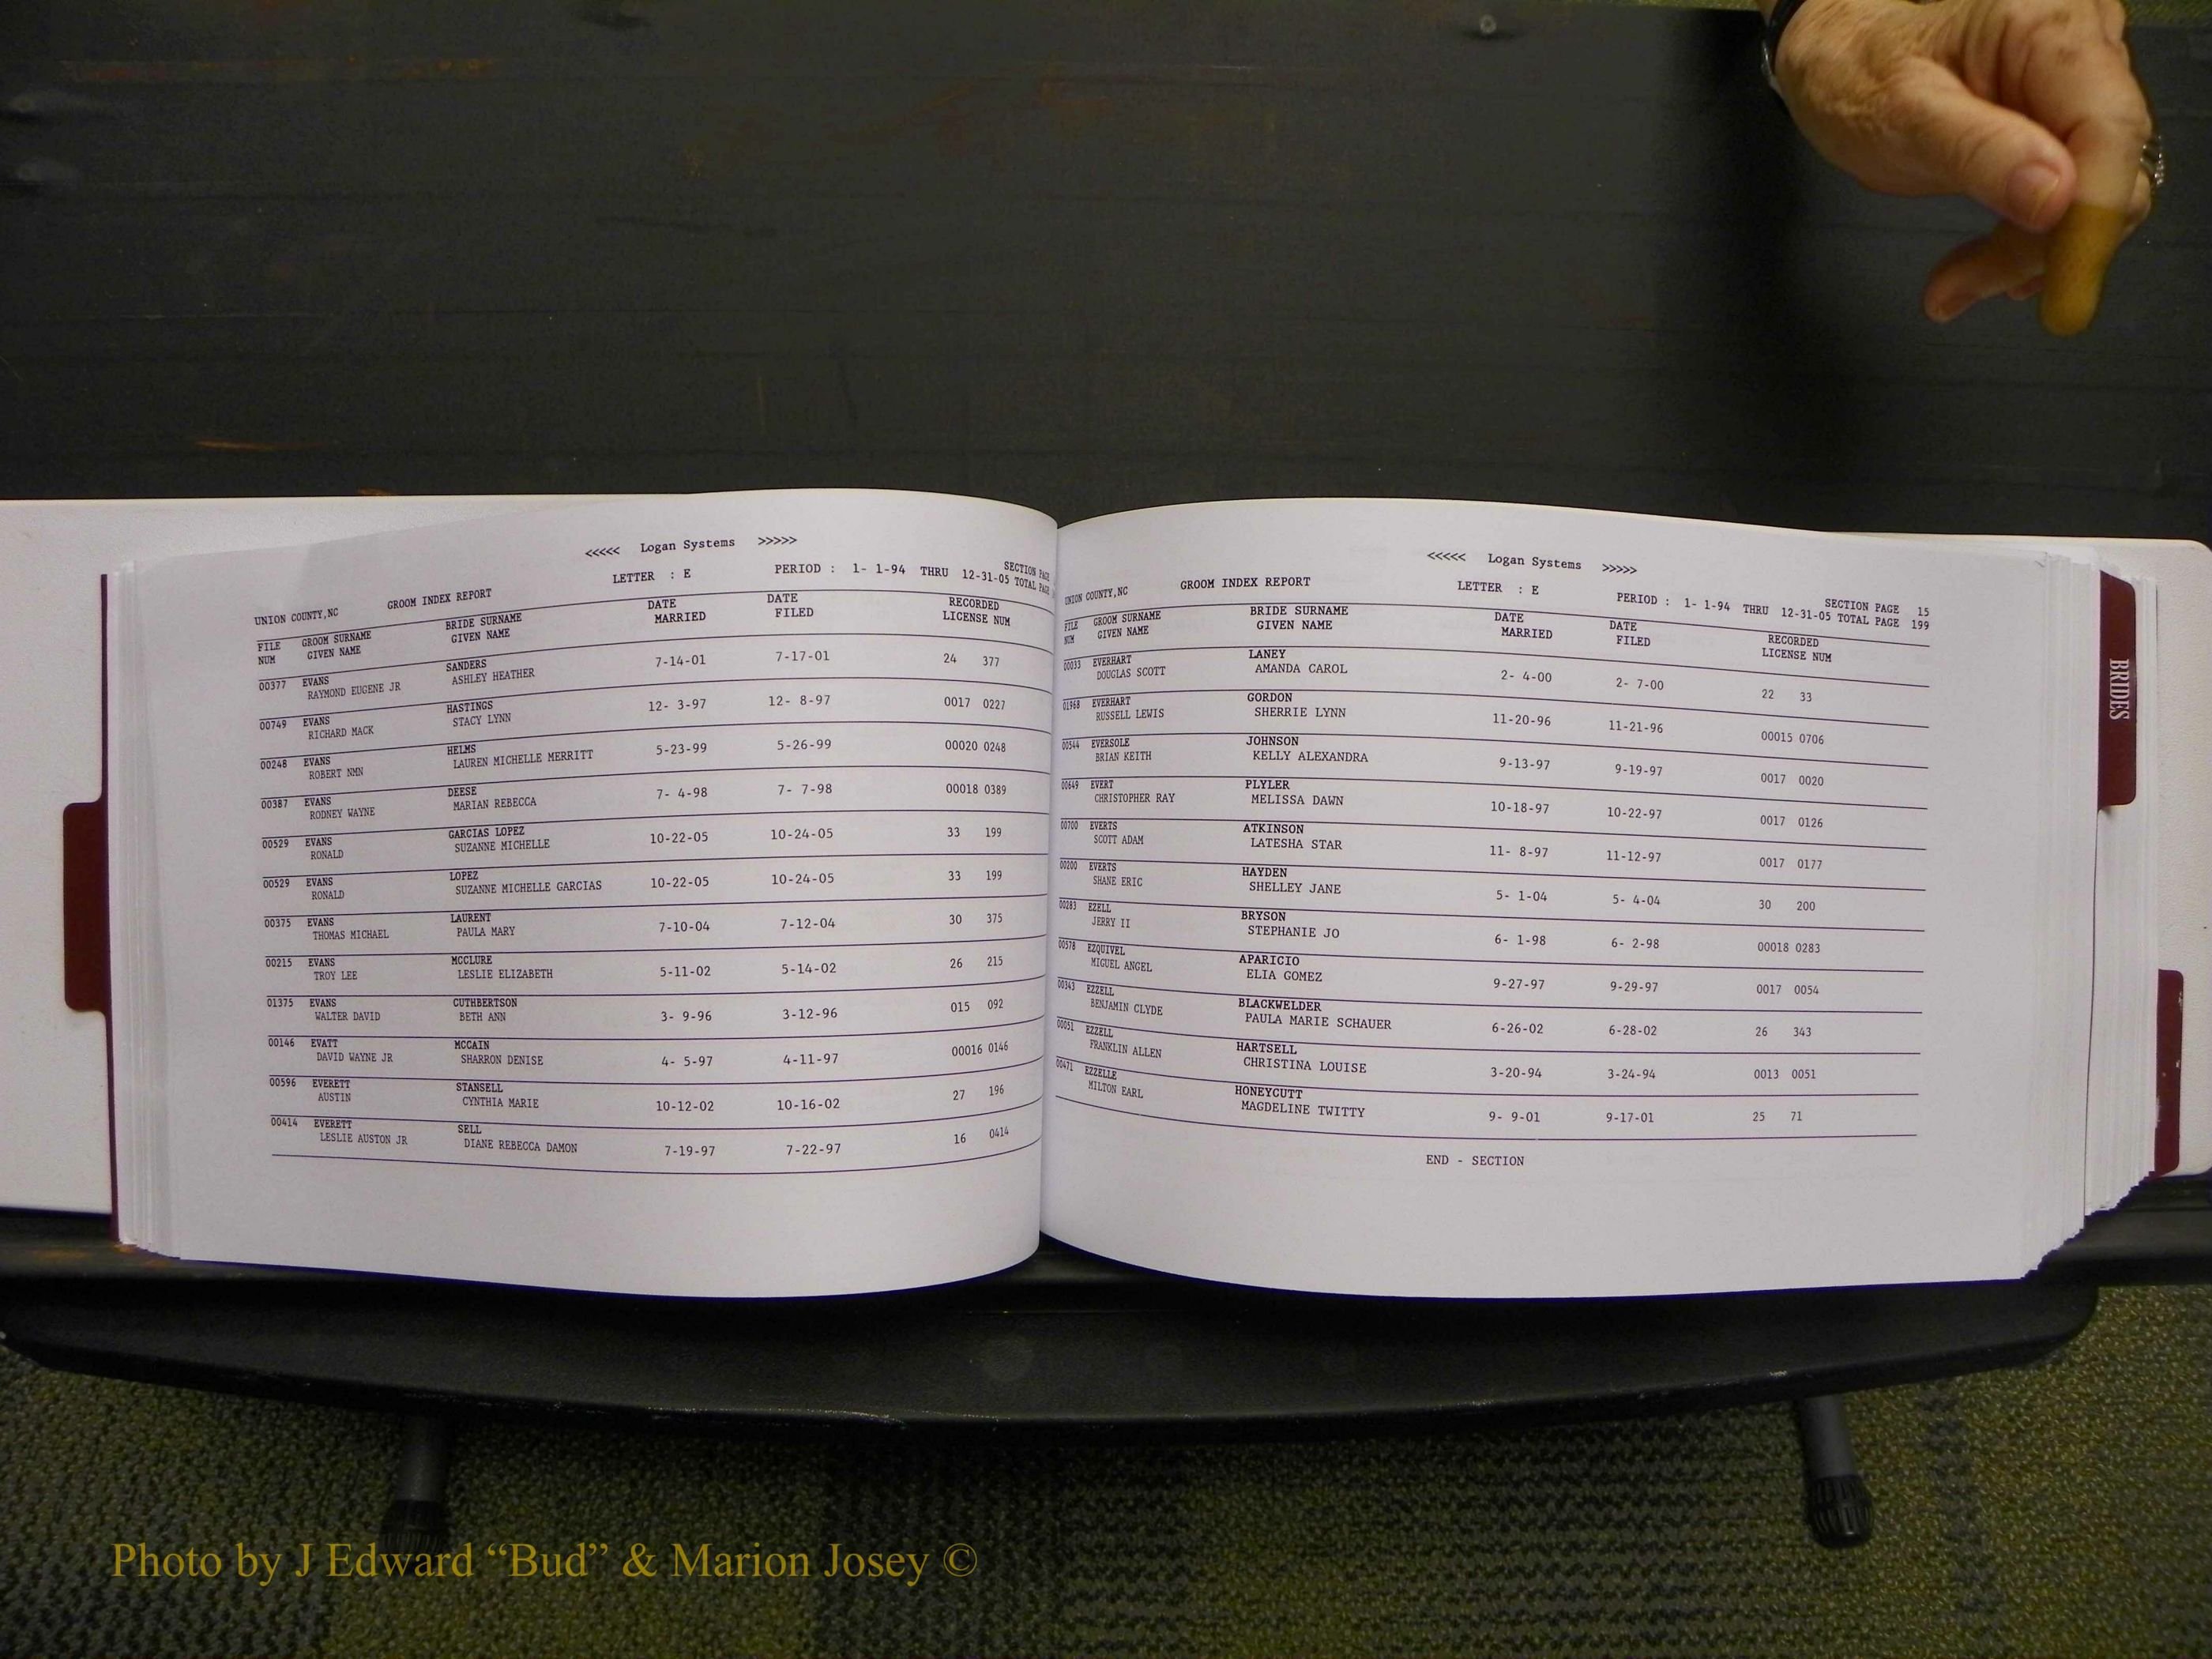 <<<<< Logan Systems >>>>>
LETTER : E PERIOD : 1- 1-94 THRU 12-31-05 SECTION PAGE
TOTAL PAGE
UNION COUNTY,NC GROOM INDEX REPORT
FILE GROOM SURNAME BRIDE SURNAME DATE DATE RECORDED
NUM GIVEN NAME GIVEN NAME MARRIED FILED LICENSE NUM
00377 EVANS SANDERS 7-14-01 7-17-01 24 377
RAYMOND EUGENE JR ASHLEY HEATHER
00749 EVANS HASTINGS 12- 3-97 12- 8-97 0017 0227
RICHARD MACK STACY LYNN
00248 EVANS HELMS 5-23-99 5-26-99 00020 0248
ROBERT NMN LAUREN MICHELLE MERRITT
00387 EVANS DEESE 7- 4-98 7- 7-98 00018 0389
RODNEY WAYNE MARIAN REBECCA
00529 EVANS GARCIAS LOPEZ 10-22-05 10-24-05 33 199
RONALD SUZANNE MICHELLE
00529 EVANS LOPEZ 10-22-05 10-24-05 33 199
RONALD SUZANNE MICHELLE GARCIAS
00375 EVANS LAURENT 7-10-04 7-12-04 30 375
THOMAS MICHAEL PAULA MARY
00215 EVANS MCCLURE 5-11-02 5-14-02 26 215
TROY LEE LESLIE ELIZABETH
01375 EVANS CUTHBERTSON 3- 9-96 3-12-96 015 092
WALTER DAVID BETH ANN
00146 EVATT MCCAIN 4- 5-97 4-11-97 00016 0146
DAVID WAYNE JR SHARRON DENISE
00596 EVERETT STANSELL 10-12-02 10-16-02 27 196
AUSTIN CYNTHIA MARIE
00414 EVERETT SELL 7-19-97 7-22-97 16 0414
LESLIE AUSTON JR DIANE REBECCA DAMON
<<<<< Logan Systems >>>>>
UNION COUNTY,NC GROOM INDEX REPORT LETTER : E PERIOD : 1- 1-94 THRU 12-31-05 SECTION PAGE 15
TOTAL PAGE 199
FILE GROOM SURNAME BRIDE SURNAME DATE DATE RECORDED
NUM GIVEN NAME GIVEN NAME MARRIED FILED LICENSE NUM
00033 EVERHART LANEY 2- 4-00 2- 7-00 22 33
DOUGLAS SCOTT AMANDA CAROL
01968 EVERHART GORDON 11-20-96 11-21-96 00015 0706
RUSSELL LEWIS SHERRIE LYNN
00544 EVERSOLE JOHNSON 9-13-97 9-19-97 0017 0020
BRIAN KEITH KELLY ALEXANDRA
00649 EVERT PLYLER 10-18-97 10-22-97 0017 0126
CHRISTOPHER RAY MELISSA DAWN
00700 EVERTS ATKINSON 11- 8-97 11-12-97 0017 0177
SCOTT ADAM LATESHA STAR
00200 EVERTS HAYDEN 5- 1-04 5- 4-04 30 200
SHANE ERIC SHELLEY JANE
00283 EZELL BRYSON 6- 1-98 6- 2-98 00018 0283
JERRY II STEPHANIE JO
00578 EZQUIVEL APARICIO 9-27-97 9-29-97 0017 0054
MIGUEL ANGEL ELIA GOMEZ
00343 EZZELL BLACKWELDER 6-26-02 6-28-02 26 343
BENJAMIN CLYDE PAULA MARIE SCHAUER
00051 EZZELL HARTSELL 3-20-94 3-24-94 0013 0051
FRANKLIN ALLEN CHRISTINA LOUISE
00471 EZZELLE HONEYCUTT 9- 9-01 9-17-01 25 71
MILTON EARL MAGDELINE TWITTY
END - SECTION
BRIDES
Photo by J Edward “Bud” & Marion Josey ©